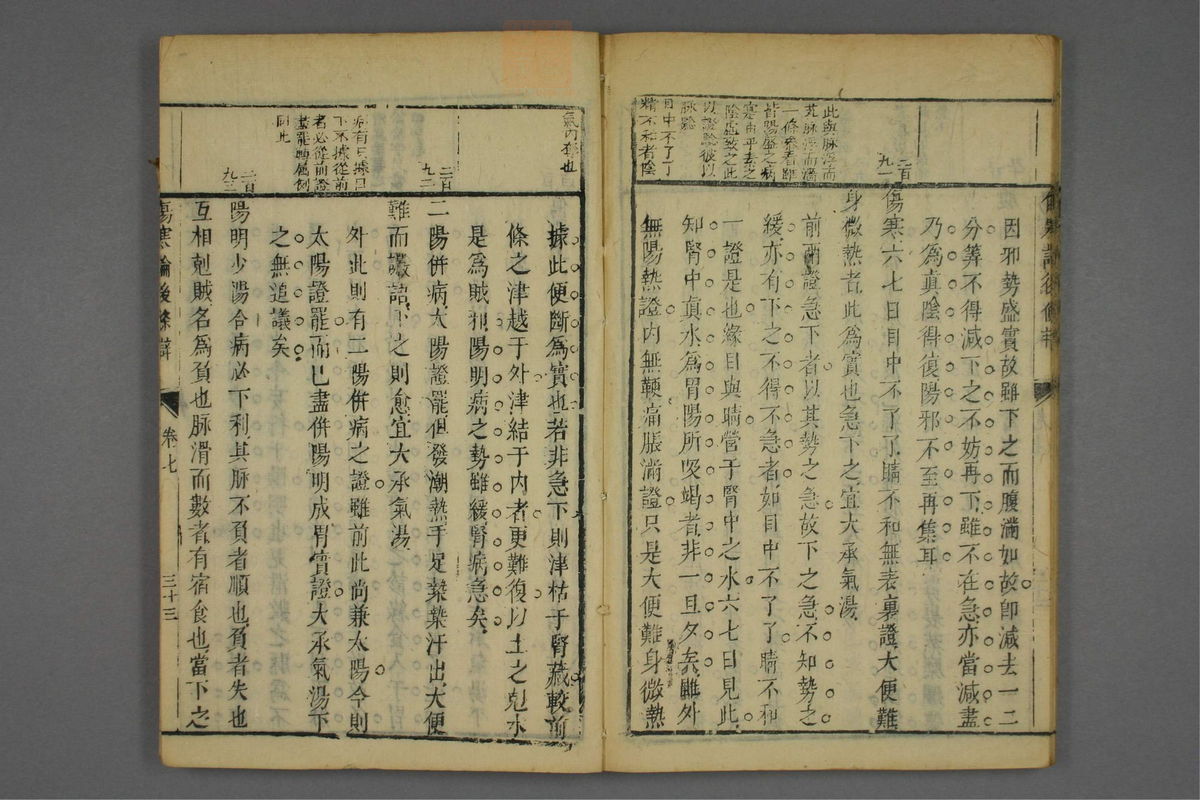 此與脉浮而
芤脉浮而濇
一條參看彼
皆陽盛之病
陰虛致之此
以證驗彼以
脉驗
目中不了了
睛不和者陰
二百
九一
因邪勢盛實故雖下之而腹滿如故卽減去一二
分筭不得減下之不妨再下雖不在急亦當減盡
乃爲眞陰得復陽邪不至再集耳
傷寒六七日目中不了了睛不和無表裏證大便難
身微熱者此爲實也急下之宜大承氣湯
前兩證急下者以其勢之急故下之急不知勢之
緩亦有下之不得不急者如目中不了了睛不和
一證是也緣目與睛營于腎中之水六七日見此
知腎中眞水爲胃陽所吸竭者非一旦夕矣雖外
無陽熱證內無鞕痛脹滿證只是大便難身微熱
氣內奪也
二百
九二
病有只據目
下不據從前
者必從前證
盡罷轉屬例
同此
二百
九三
據此便斷爲實也若非急下則津枯于腎藏較前
條之津越于外津結于內者更難復以土之剋水
是爲賊邪陽明病之勢雖緩腎病急矣
二陽併病太陽證罷但發潮熱手足漐漐汗出大便
難而讝語者下之則愈宜大承氣湯
外此則有二陽併病之證雖前此尚兼太陽今則
太陽證罷而已盡併陽明成胃實證大承氣湯下
之無追議矣
陽明少陽合病必下利其脉不負者順也負者失也
互相剋賊名爲負也脉滑而數者有宿食也當下之
傷寒論後條辯
卷七
三十三